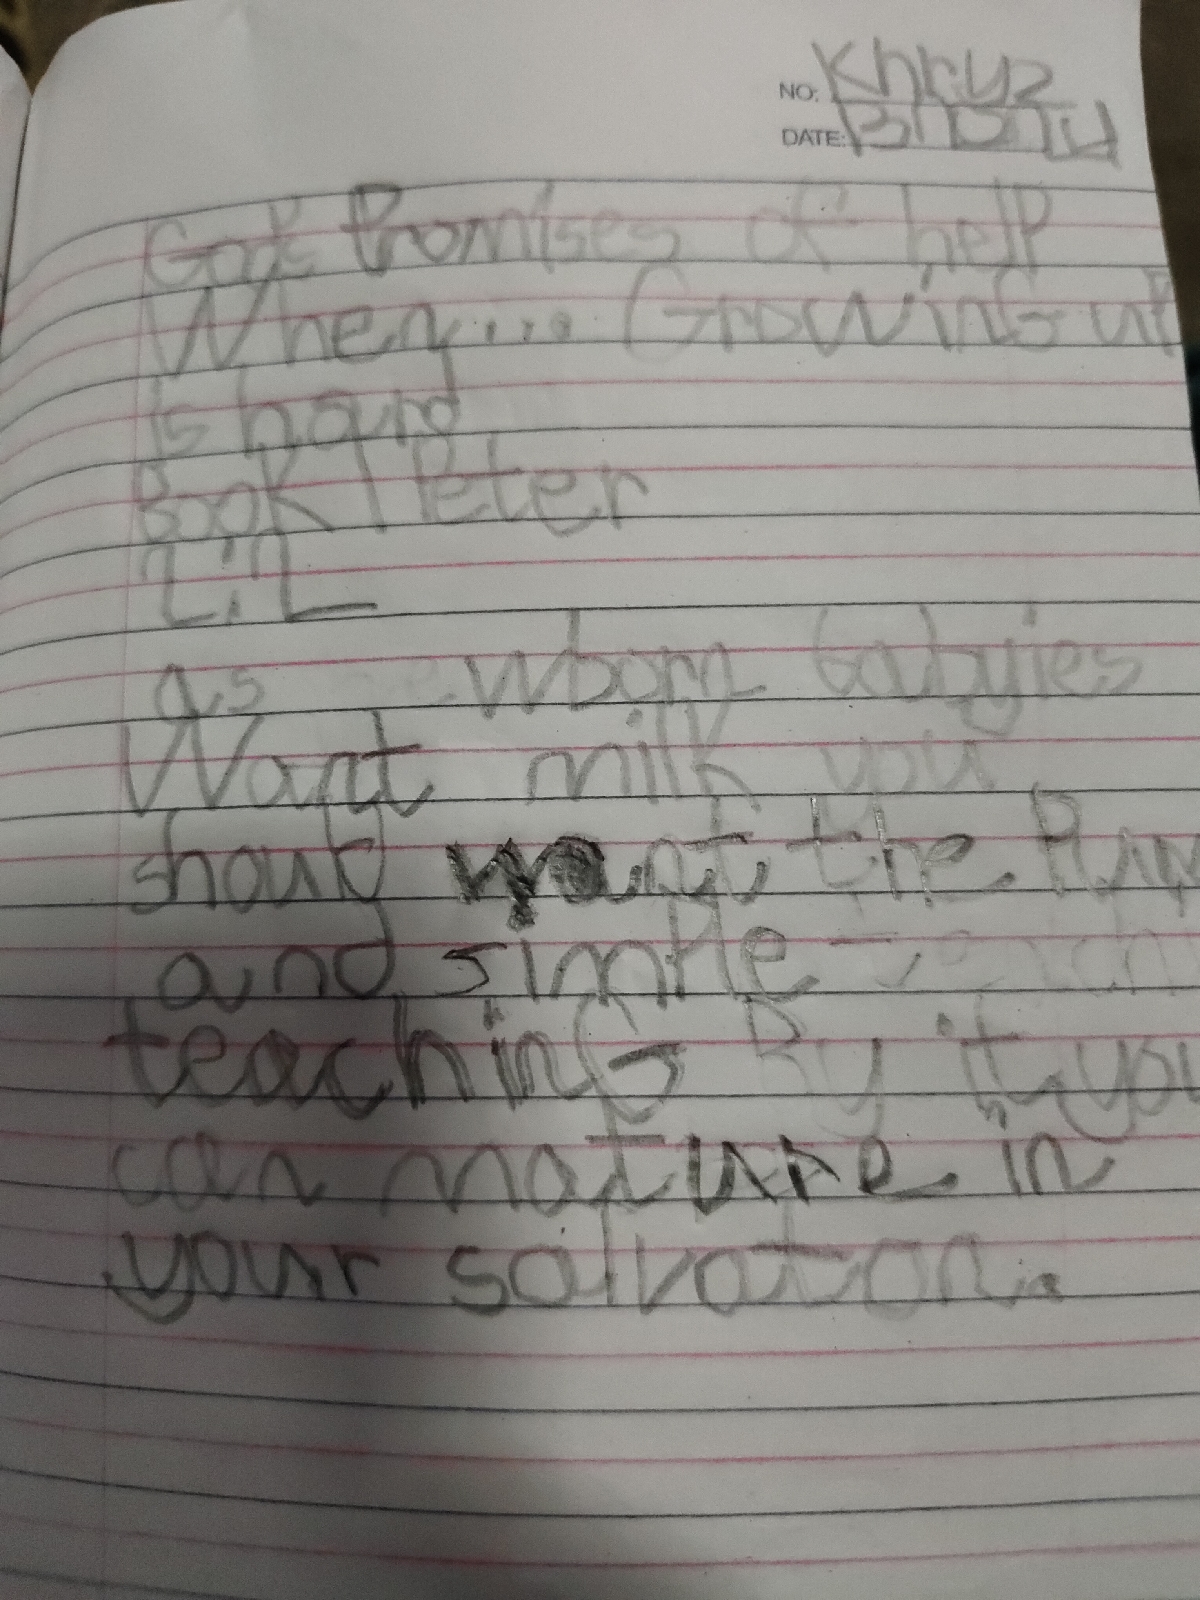 NO: Khryz
DATE:
God's Promises of help
When... GrowinG up
is hourd
Book 1 Peter
2:2
as ewborn babyies
Want milk you
should want the Pure
and simple
teachinG By it you
can mature in
your salvaton.